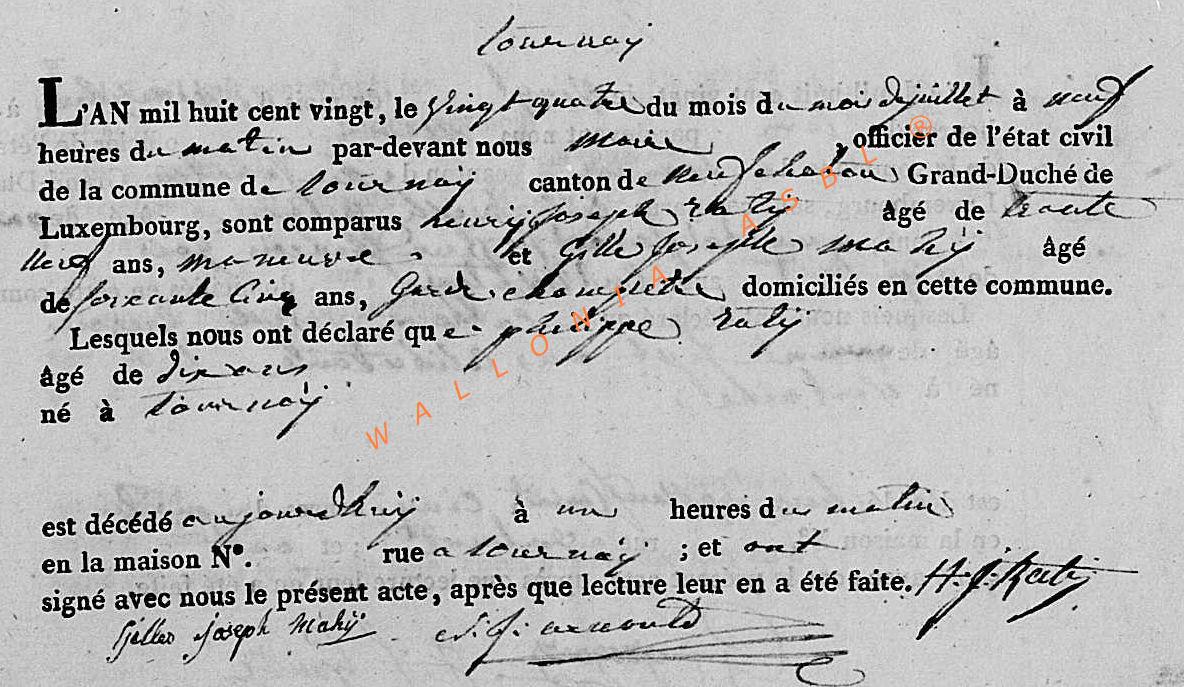 tournaÿ
L'AN mil huit cent vingt, le vingt quatre du mois du mois dejuillet à neuf
heures du matin par-devant nous maire , officier de l'état civil
de la commune de tournaÿ canton de neufchatau Grand-Duché de
Luxembourg, sont comparus henrij Joseph ratij âgé de trente
neuf ans, maneuve et Gille Joseph mahÿ âgé
de soixante Cinq ans, Garde champetre domiciliés en cette commune.
Lesquels nous ont déclaré que philippe ratij
âgé de dix ans
né à tournaÿ
WALLONIA ASBL ®
est décédé aujourdhuij à un heures du matin
en la maison N°. rue a tournaÿ ; et ont
signé avec nous le présent acte, après que lecture leur en a été faite. H. J. Ratij
Gilles Joseph Mahÿ J. arnould